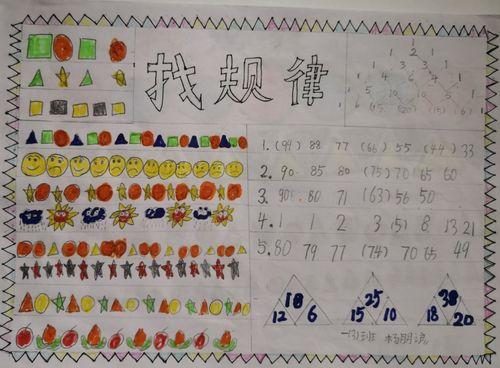 找规律
1
1 2 1
1 3 3 1
1 4 6 4 1
1 5 10 10 5 1
1 6 (15) (20) (15) (6) 1
1. (99) 88 77 (66) 55 (44) 33
2. 90 85 80 (75) 70 65 60
3. 90 80 71 (63) 56 50
4. 1 1 2 3 (5) 8 13 21
5. 80 79 77 (74) 70 65 49
18
12 6
25
15 10
38
18 20
一(3)班 杨朋浪